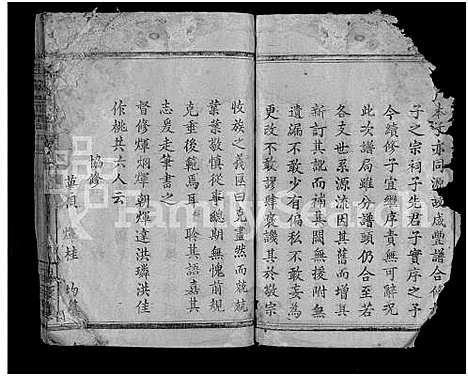 本支亦同源故咸豐譜合修
子之宗祠子先君子實序之予
今續修子宜繼序責無可辭況
此次譜局雖分譜頭仍合至若
各支世系源流因其舊而增其
新訂其訛而補其闕無援附無
遺漏不敢少有偏私不敢妄為
更改不敢謬肆褒譏其於敬宗
收族之義匪曰克盡然而兢兢
業業敬慎從事總期無愧前規
克垂後範焉耳聆其語嘉其
志爰走筆書之
督修輝炳輝朝輝達洪璘洪佳
作桃共六人云
協修
煌桂